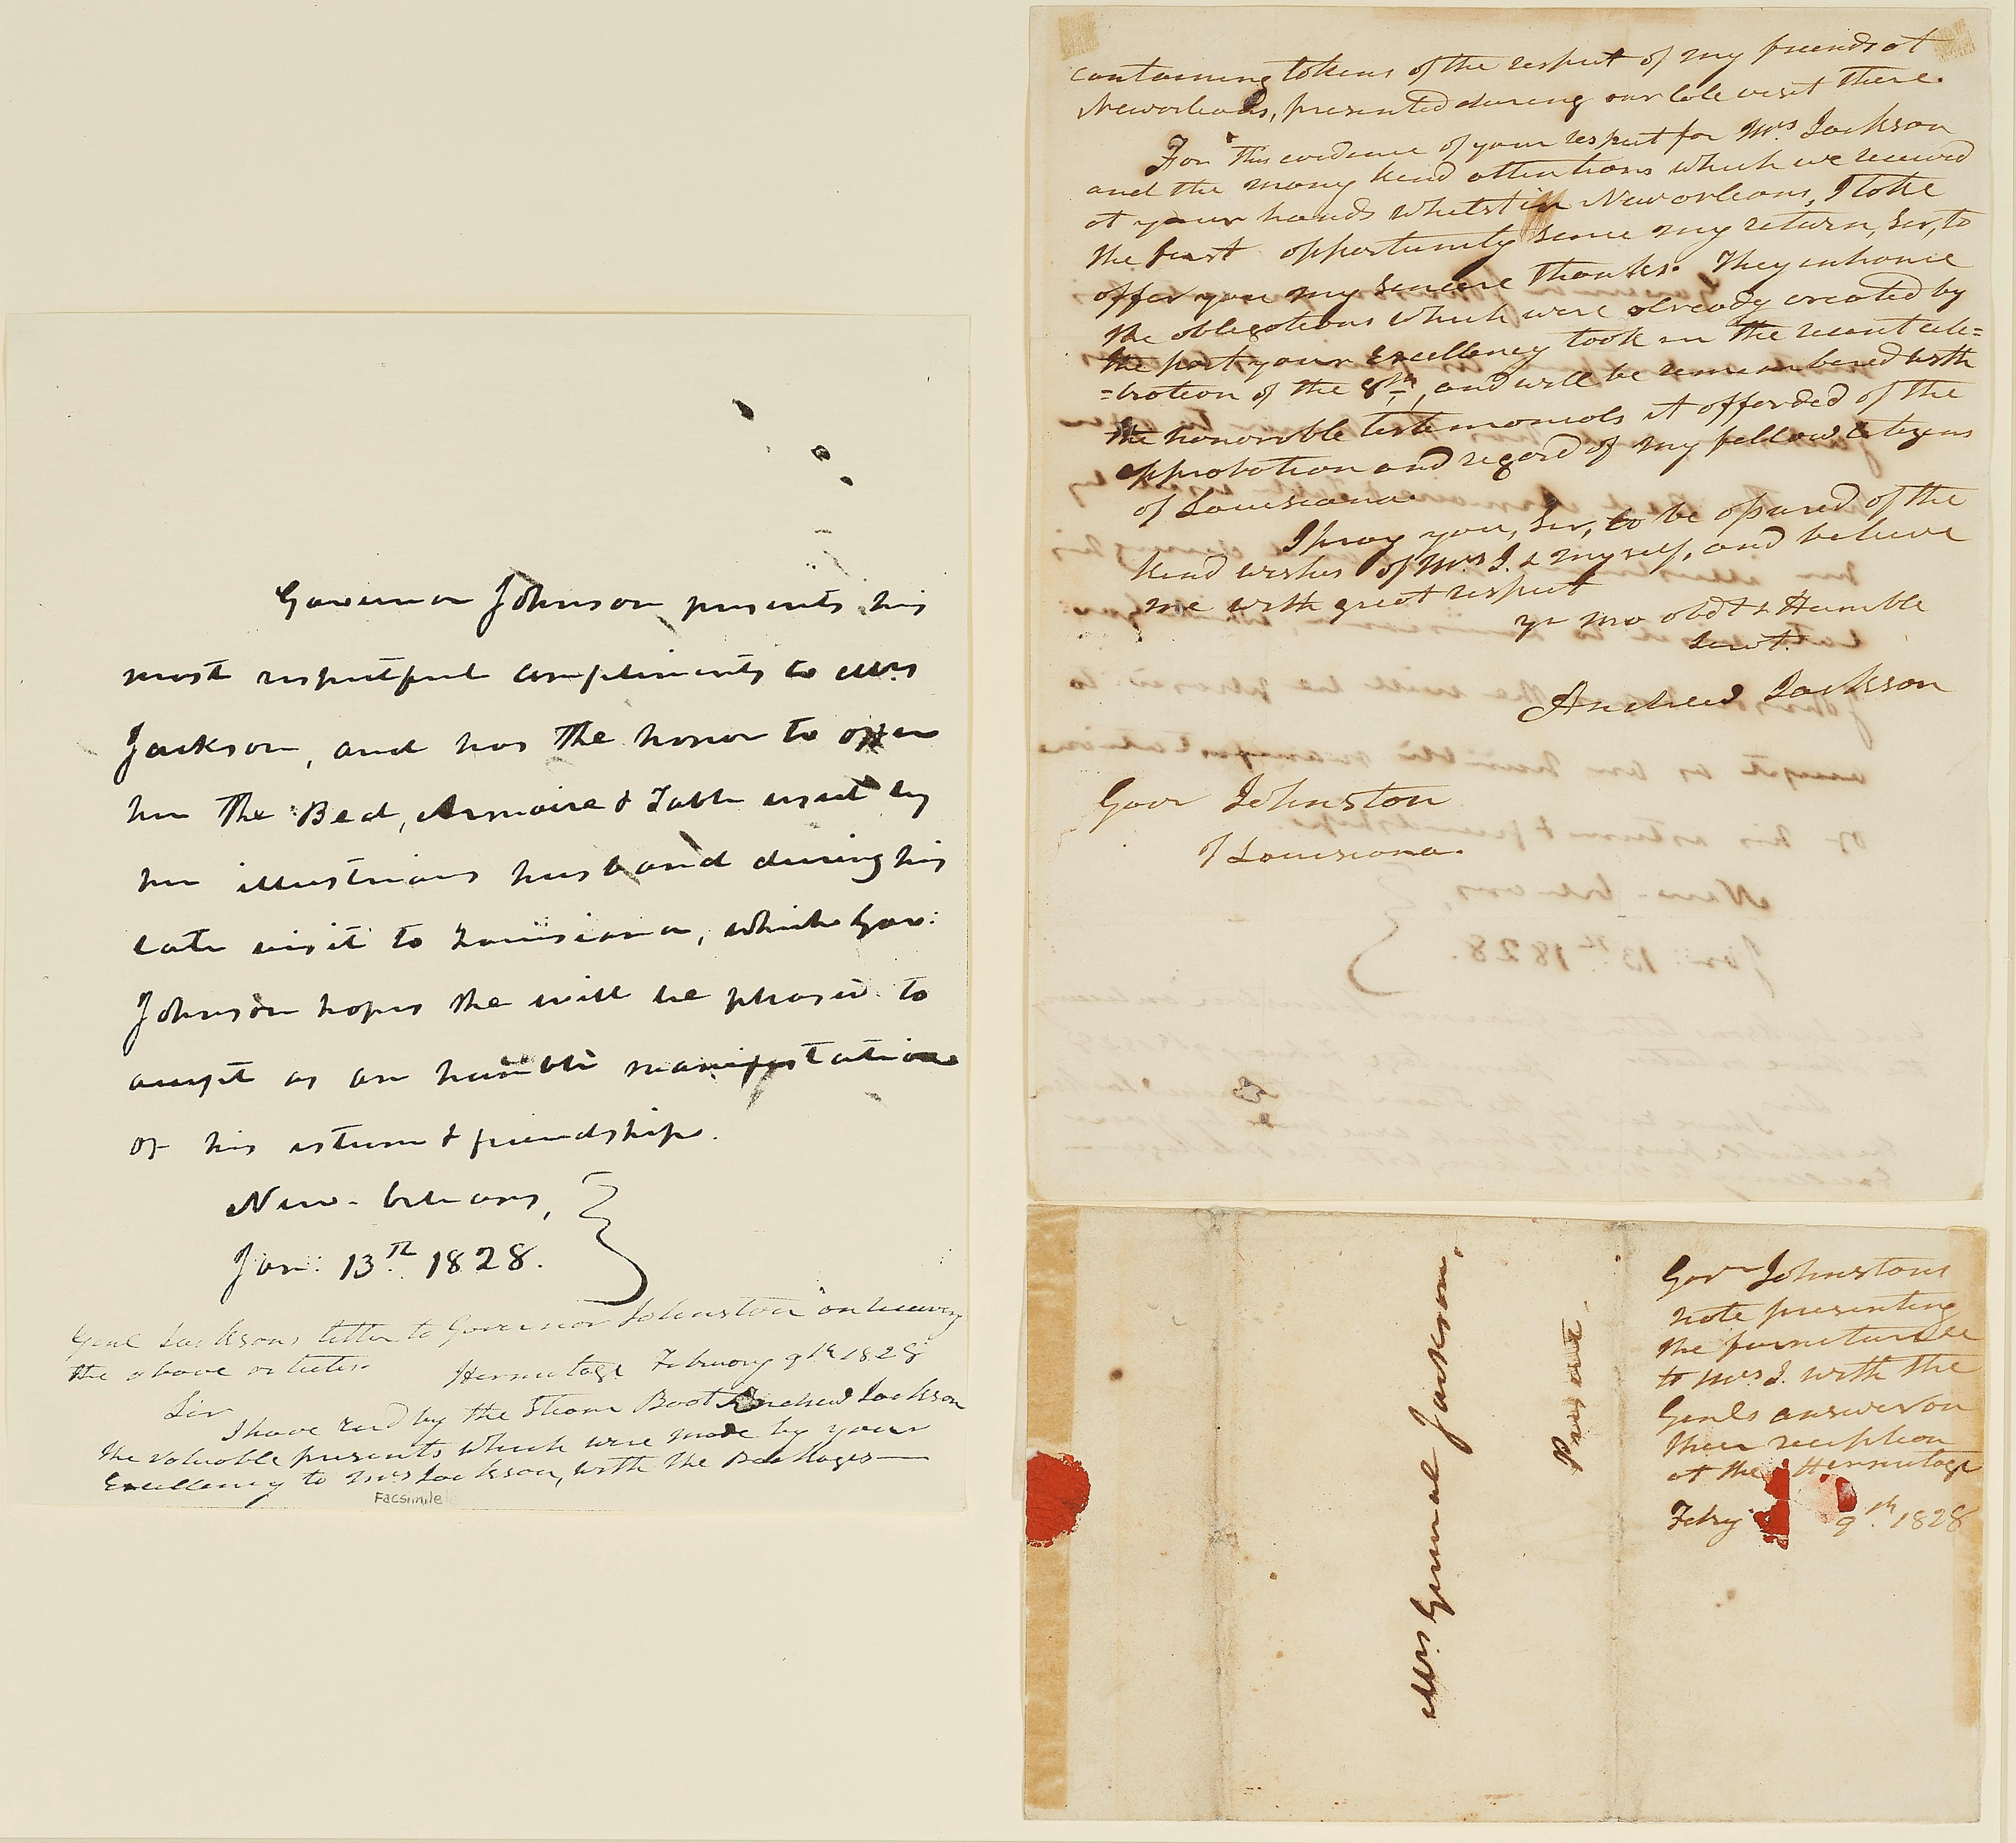 Governor Johnson presents his
most respectful compliments to Mrs
Jackson, and has the honor to offer
her the Bed, Armoire & Table used by
her illustrious husband during his
late visit to Louisiana, which Gov:
Johnson hopes she will be pleased to
accept as an humble manifestation
of his esteem & friendship.
New-Orleans,
Jan: 13th 1828.
Genl Jacksons letter to Governor Johnston on receiving
the above articles. Hermitage February 9th 1828
Sir
I have recd by the Steam Boat Andrew Jackson
the valuable presents which were made by your
Excellency to Mrs Jackson, with the Packages—
Facsimile
containing tokens of the respect of my friends at
Neworleans, presented during our late visit there.
For this evidence of your respect for Mrs Jackson
and the many kind attentions which we received
at your hands whilst in Neworleans, I take
the first opportunity since my return, Sir, to
offer you my sincere thanks. They enhance
the obligations which were already created by
the part your Excellency took in the recent cele=
=bration of the 8th, and will be remembered with
the honorable testimonials it afforded of the
approbation and regard of my fellow citizens
of Louisiana.
I pray you, Sir, to be assured of the
kind wishes of Mrs J. & myself, and believe
me with great respect
yr mo obdt & Humble
Servt.
Andrew Jackson
Govr Johnston
of Louisiana.
Mrs General Jackson,
Present
Govr Johnstons
note presenting
the furniture
to Mrs J. with the
Genls answer on
their reception
at the Hermitage
Febry 9th 1828